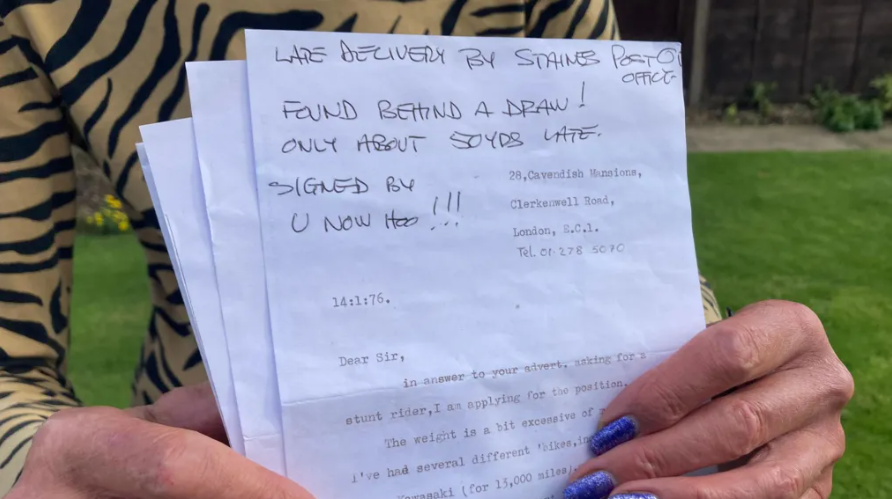 LATE DELIVERY BY STAINES POST
OFFICE
FOUND BEHIND A DRAW!
ONLY ABOUT 50YDS LATE.
SIGNED BY
U NOW HOO !!!
28,Cavendish Mansions,
Clerkenwell Road,
London, E.C.1.
Tel. 01 278 5070
14:1:76.
Dear Sir,
in answer to your advert, asking for a
stunt rider,I am applying for the position.
The weight is a bit excessive of
I've had several different 'bikes,in
Kawasaki (for 13,000 miles)